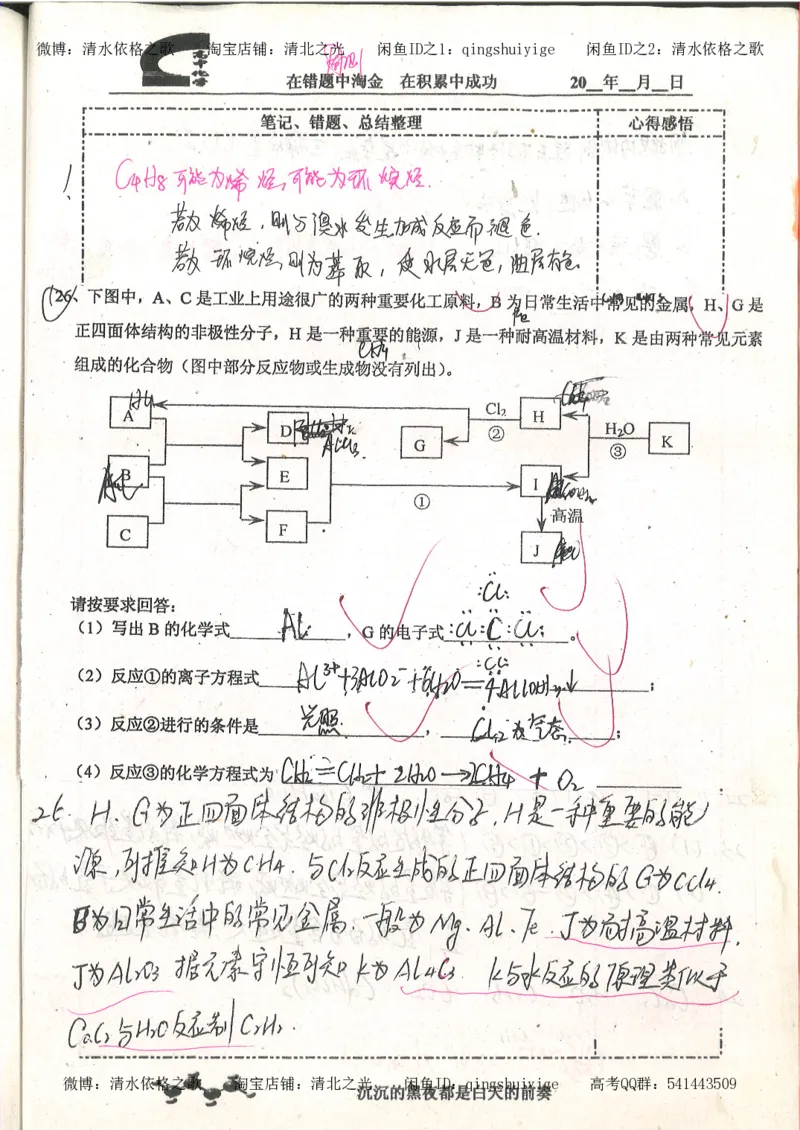 微博：清水依格之歌 淘宝店铺：清北之光 闲鱼ID之1：qingshuiyige 闲鱼ID之2：清水依格之歌
高中化学
在错题中淘金 在积累中成功 20__年__月__日
笔记、错题、总结整理 心得感悟
C4H8可能为烯烃,可能为环烷烃.
若为烯烃,则与溴水发生加成反应而褪色.
若为环烷烃,则为萃取,使水层无色,油层有色
26、下图中，A、C是工业上用途很广的两种重要化工原料，B为日常生活中常见的金属，H、G是
正四面体结构的非极性分子，H是一种重要的能源，J是一种耐高温材料，K是由两种常见元素
CH4
组成的化合物（图中部分反应物或生成物没有列出）。
A
D
AlCl3
G
Cl2
②
H
H2O
③
K
B
E
①
I
C
F
高温
J
请按要求回答：
（1）写出B的化学式 Al ，G的电子式 :Cl:C:Cl: 。
:Cl:
:Cl:
（2）反应①的离子方程式 Al3++3AlO2-+6H2O=4Al(OH)3↓ ；
（3）反应②进行的条件是 光照 ， Cl2为气态 ；
（4）反应③的化学方程式为 CH2=CH2+2H2O→2CH4+O2 .
26. H、G为正四面体结构的非极性分子,H是一种重要的能
源,可推知H为CH4.与Cl2反应生成的正四面体结构的G为CCl4.
B为日常生活中的常见金属.一般为Mg、Al、Fe.J为耐高温材料,
J为Al2O3 据元素守恒可知K为Al4C3. K与水反应的原理类似于
CaC2与H2O反应制C2H2.
微博：清水依格之歌 淘宝店铺：清北之光 闲鱼ID：qingshuiyige 高考QQ群：541443509
沉沉的黑夜都是白天的前奏